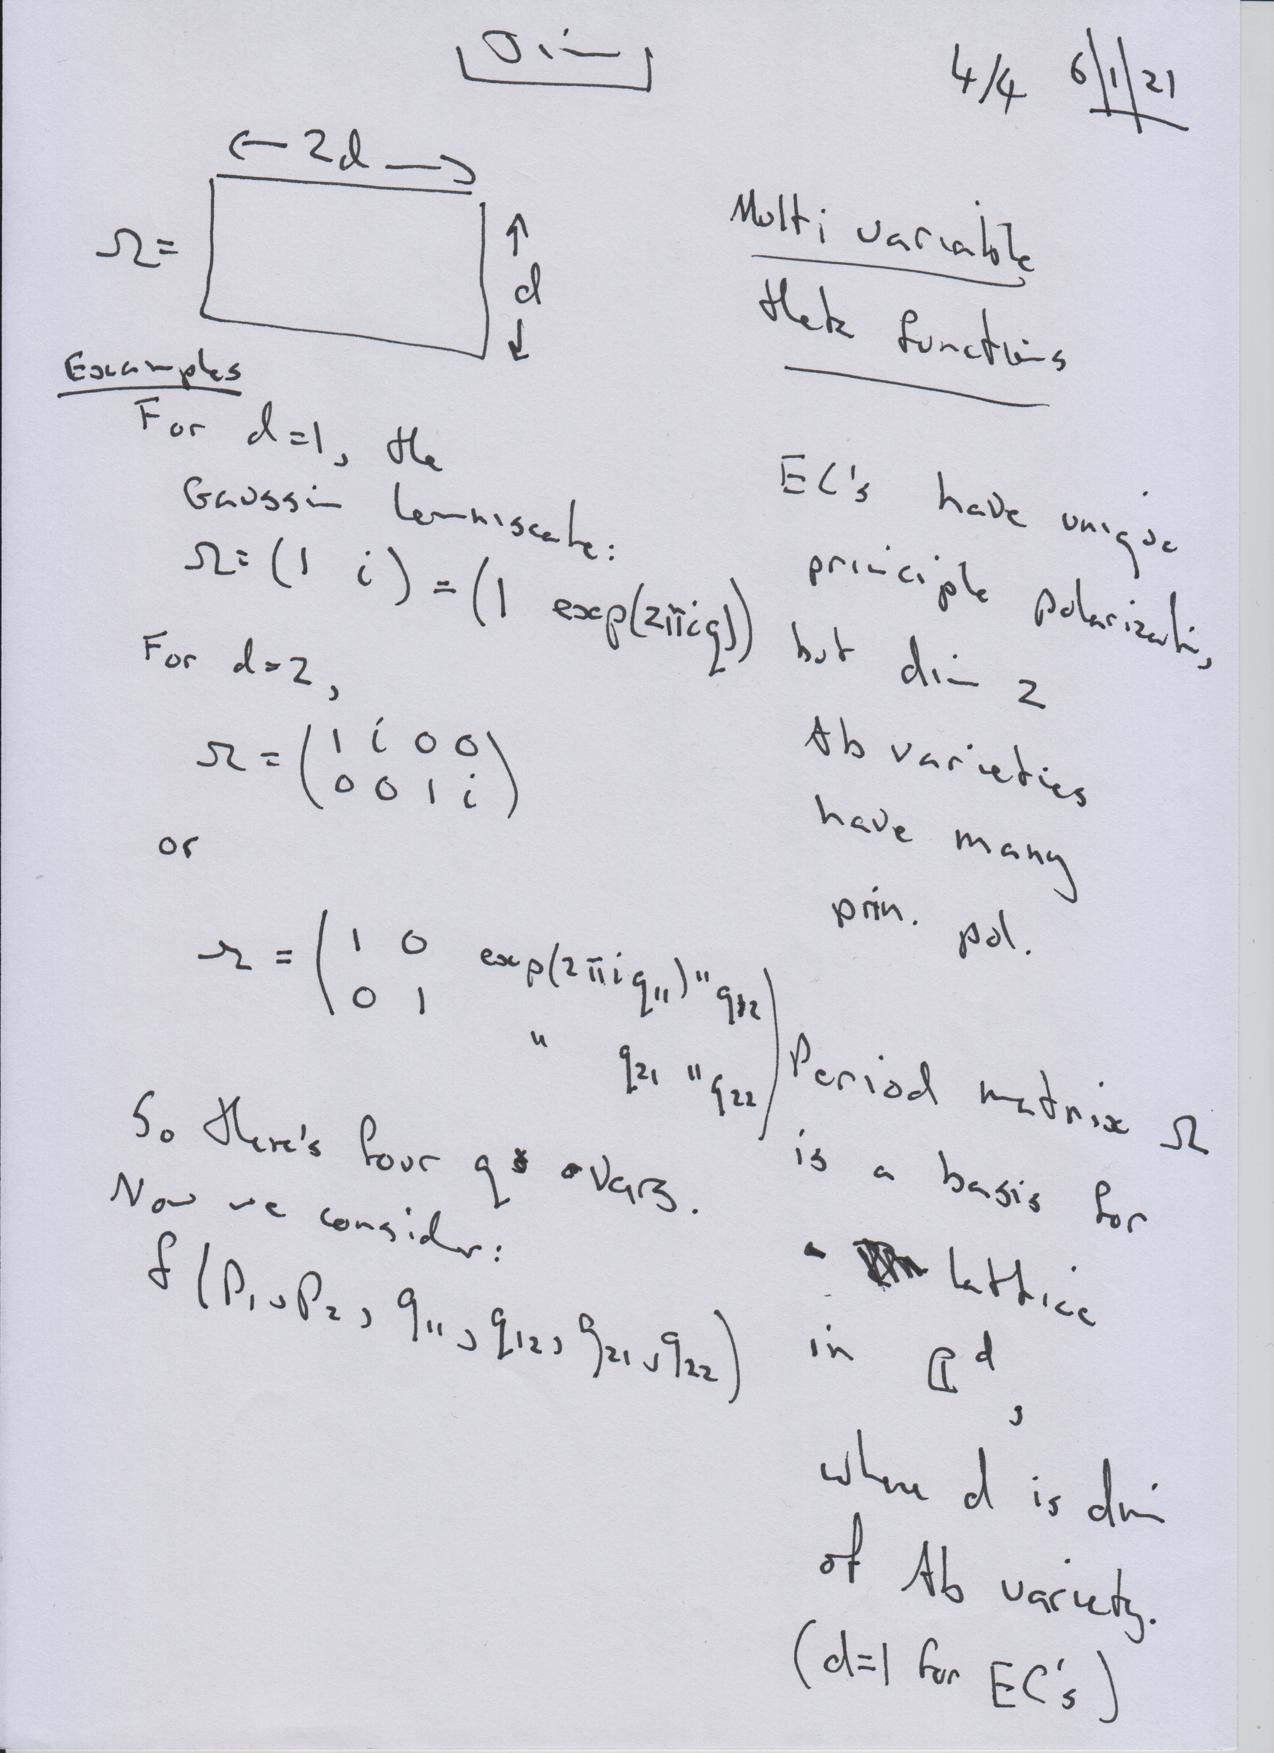 4/4 6/1/21
← 2d →
Ω=
↑
d
↓
Examples
For d=1, the
Gaussin lemniscate:
Ω=(1 i)=(1 exp(2πiq))
For d=2,
Ω=(1 i 0 0
0 0 1 i)
or
Ω = (1 0 exp(2πiq11) " q12
0 1 " q21 " q22)
So there's four q vars.
Now we consider:
f(p1, p2, q11, q12, q21, q22)
Multi variable
theta functions
EC's have unique
principle polarizatin,
but dim 2
Ab varieties
have many
prin. pol.
Period matrix Ω
is a basis for
lattice
in ℂ^d,
where d is dim
of Ab variety.
(d=1 for EC's)